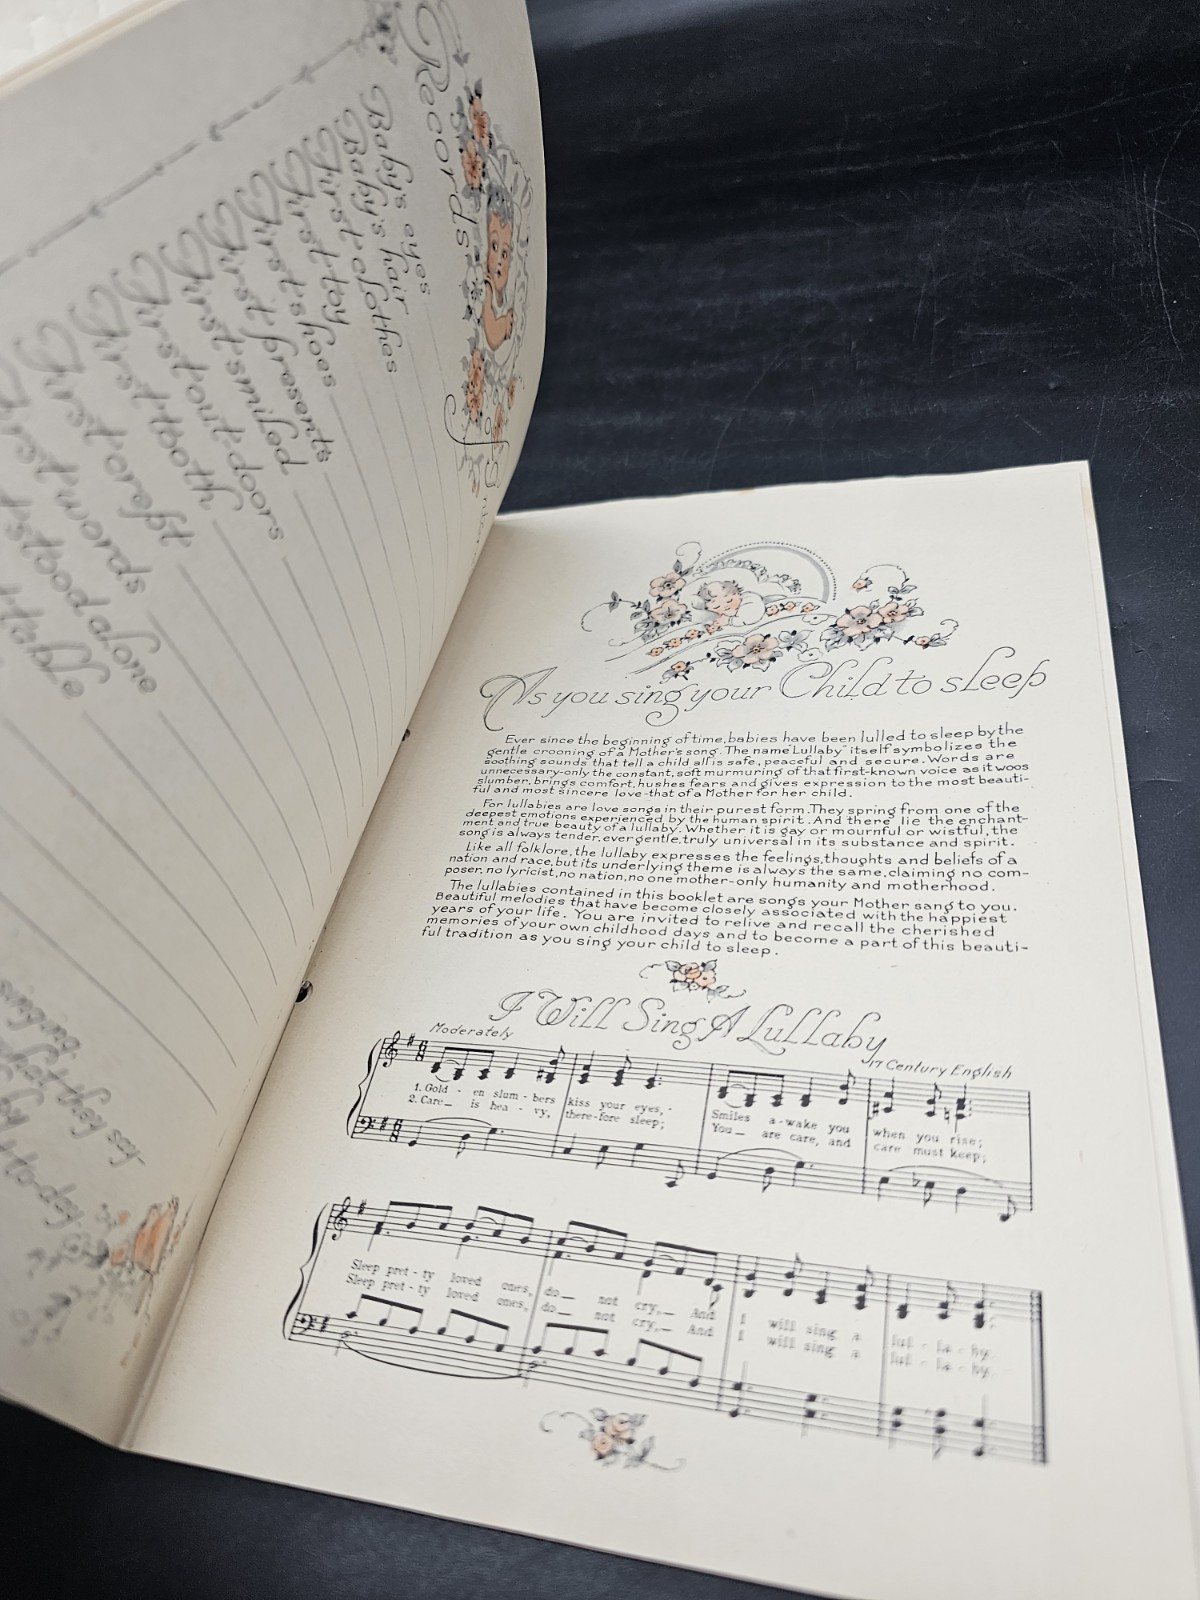 Records
Baby's eyes
Baby's hair
First clothes
First toy
First shoes
First
First smiled
First
First
First crept
First words
First stood alone
they say
to-day
As you sing your Child to sleep
Ever since the beginning of time, babies have been lulled to sleep by the
gentle crooning of a Mother's song. The name "Lullaby" itself symbolizes the
soothing sounds that tell a child all is safe, peaceful and secure. Words are
unnecessary-only the constant, soft murmuring of that first-known voice as it woos
slumber, brings comfort, hushes fears and gives expression to the most beauti-
ful and most sincere love-that of a Mother for her child.
For lullabies are love songs in their purest form. They spring from one of the
deepest emotions experienced by the human spirit. And there lie the enchant-
ment and true beauty of a lullaby. Whether it is gay or mournful or wistful, the
song is always tender, ever gentle, truly universal in its substance and spirit.
Like all folklore, the lullaby expresses the feelings, thoughts and beliefs of a
nation and race, but its underlying theme is always the same, claiming no com-
poser, no lyricist, no nation, no one mother-only humanity and motherhood.
The lullabies contained in this booklet are songs your Mother sang to you.
Beautiful melodies that have become closely associated with the happiest
years of your life. You are invited to relive and recall the cherished
memories of your own childhood days and to become a part of this beauti-
ful tradition as you sing your child to sleep.
I Will Sing A Lullaby
Moderately
17 Century English
1. Gold - en slum - bers kiss your eyes, - Smiles a - wake you when you rise;
2. Care_ is hea - vy, there-fore sleep; You_ are care, and care must keep;
Sleep pret - ty loved ones, do_ not cry,_ And I will sing a lul - la - by.
Sleep pret - ty loved ones, do_ not cry,_ And I will sing a lul - la - by.